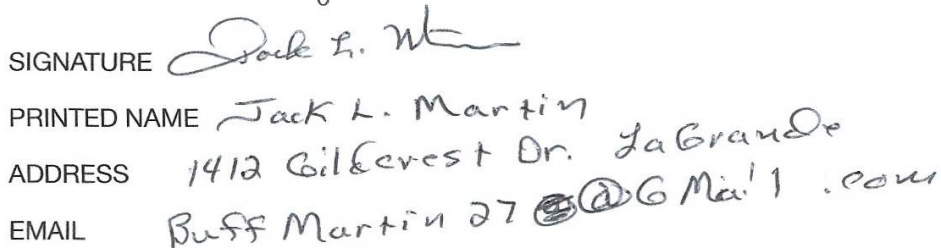 SIGNATURE Jack L. M
PRINTED NAME Jack L. Martin
ADDRESS 1412 Gildcrest Dr. LaGrande
EMAIL Buff Martin 27 @GMail.com